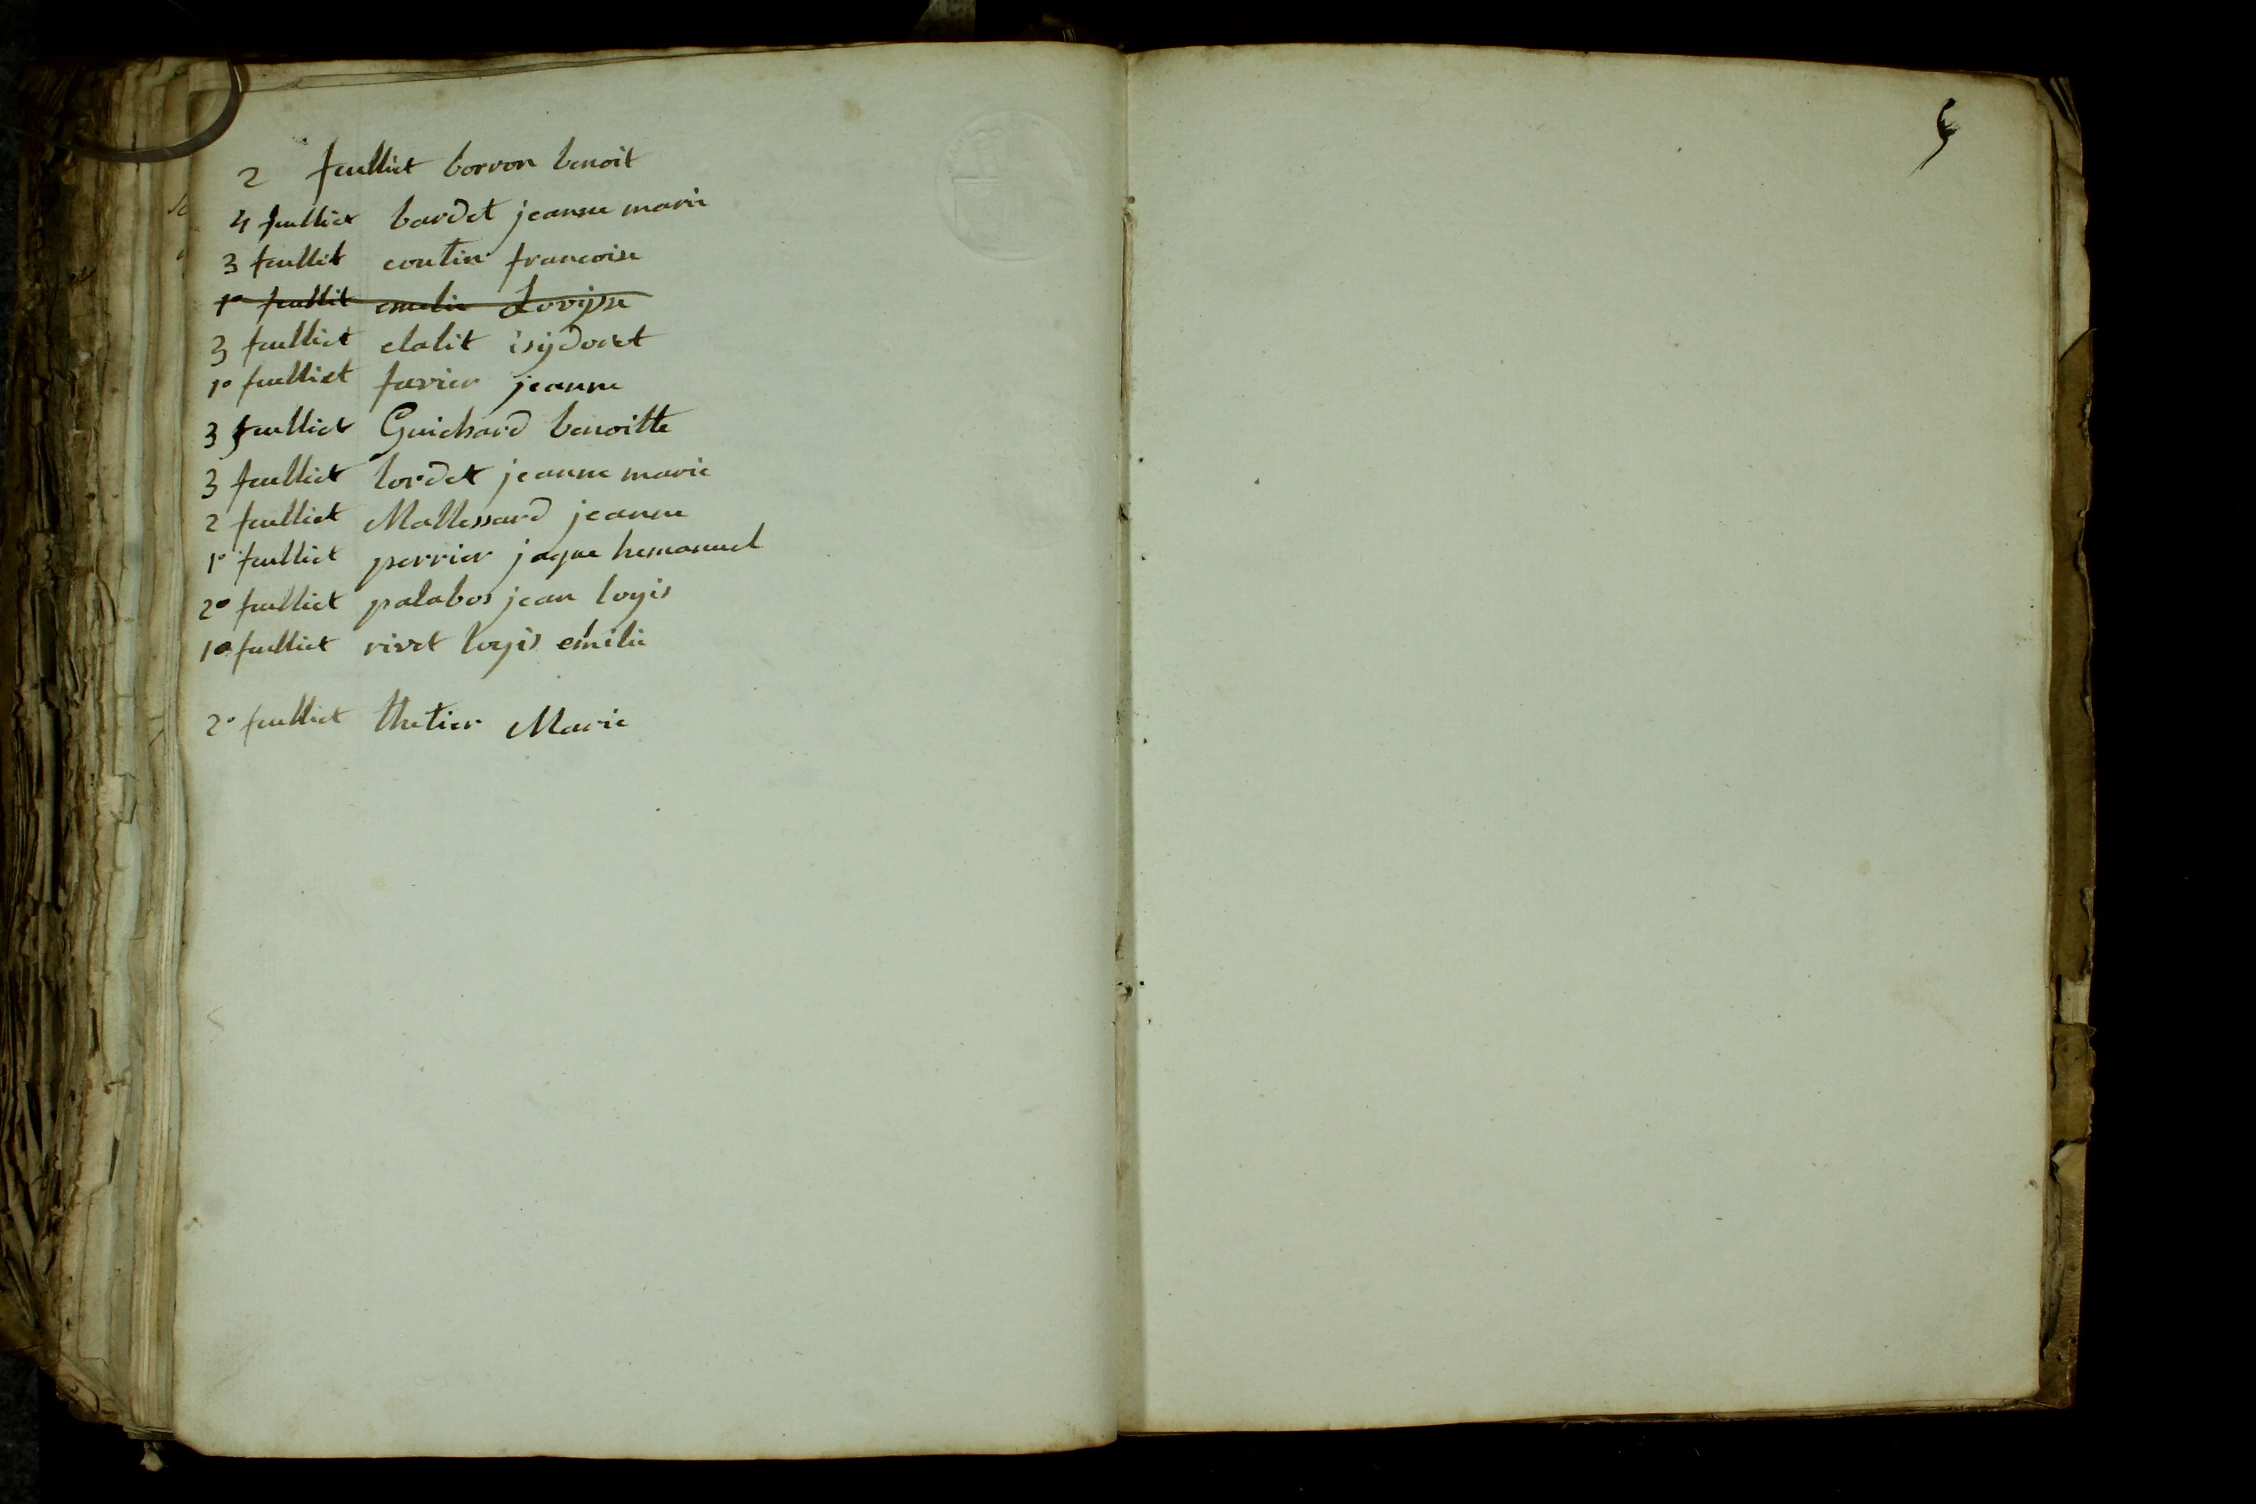 2 feulliet borron benoit
4 feulliet bardet jeanne marie
3 feulliet coutin francoise
1º feulliet emelie Lovysse
3 feulliet elalit isydoret
1º feulliet favier jeanne
3 feulliet Guichard benoitte
3 feulliet lordet jeanne marie
2 feulliet Mallessard jeanne
1º feulliet perrier jaque hemanuel
2º feulliet palabos jean loyis
1º feulliet rivet loyis emilie
2º feulliet thetier Marie